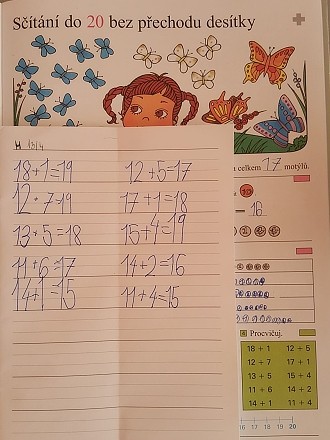 Sčítání do 20 bez přechodu desítky
celkem 17 motýlů.
18+1=19 12+5=17
12+7=19 17+1=18
13+5=18 15+4=19
11+6=17 14+2=16
14+1=15 11+4=15
16
4 Procvičuj.
18 + 1 12 + 5
12 + 7 17 + 1
13 + 5 15 + 4
11 + 6 14 + 2
14 + 1 11 + 4
16 17 18 19 20